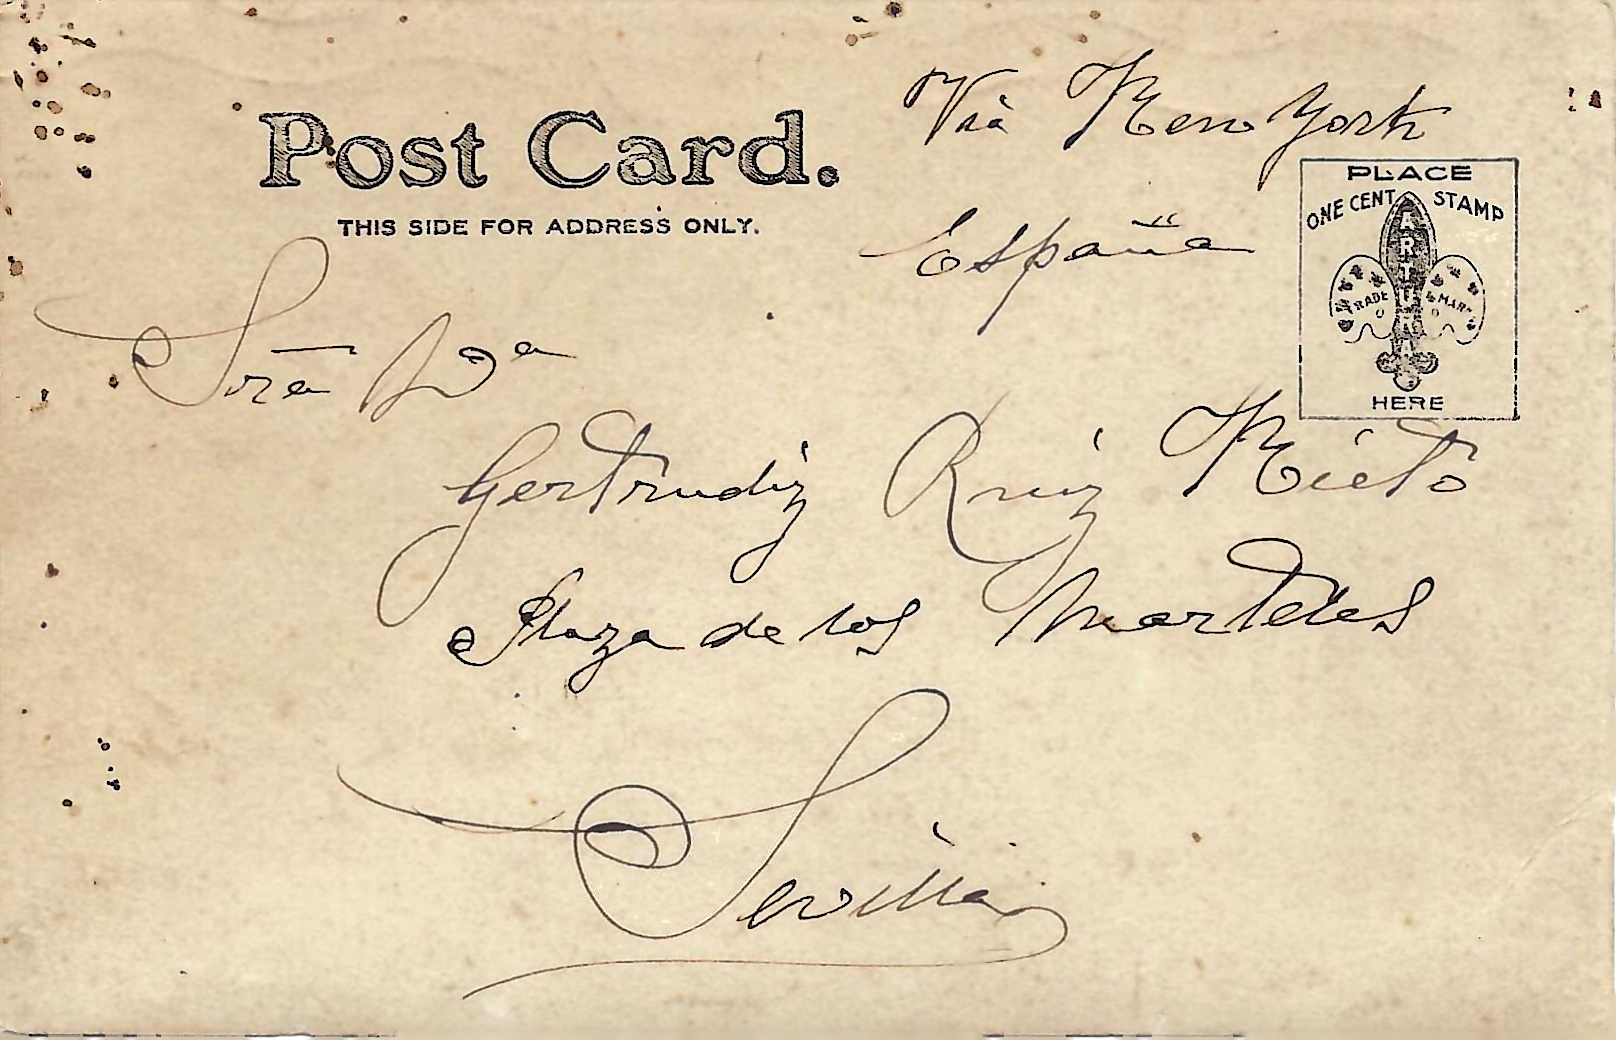 Post Card.
THIS SIDE FOR ADDRESS ONLY.
Via New York
España
PLACE
ONE CENT STAMP
ARTURA
TRADE MARK
HERE
Sra Da
Gertrudiz Ruiz Nieto
Plaza de los
Sevilla